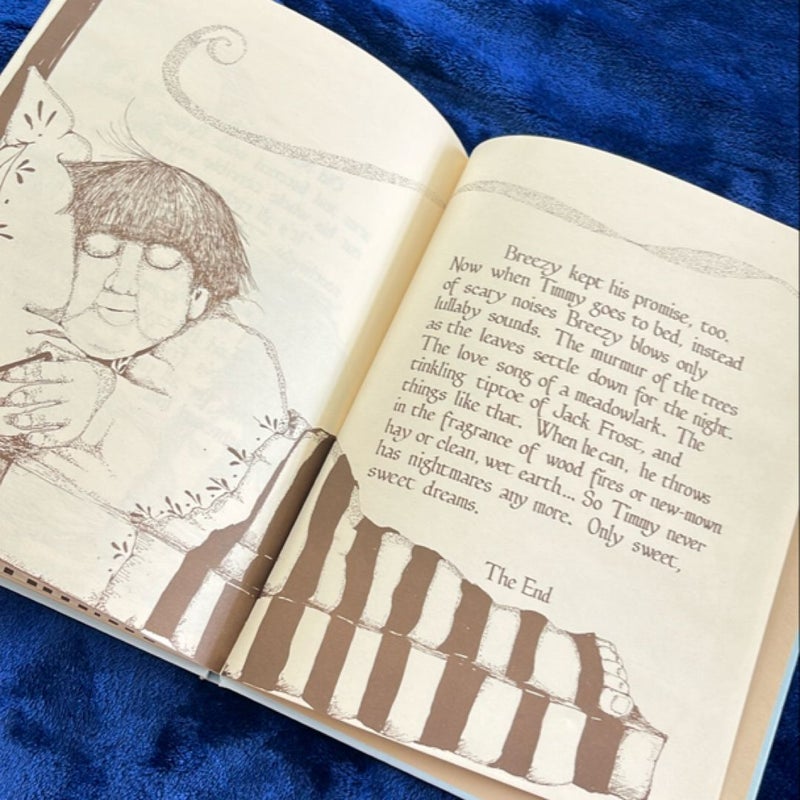 Breezy kept his promise, too.
Now when Timmy goes to bed, instead
of scary noises Breezy blows only
lullaby sounds. The murmur of the trees
as the leaves settle down for the night.
The love song of a meadowlark. The
tinkling tiptoe of Jack Frost, and
things like that. When he can, he throws
in the fragrance of wood fires or new-mown
hay or clean, wet earth... So Timmy never
has nightmares any more. Only sweet,
sweet dreams.
The End